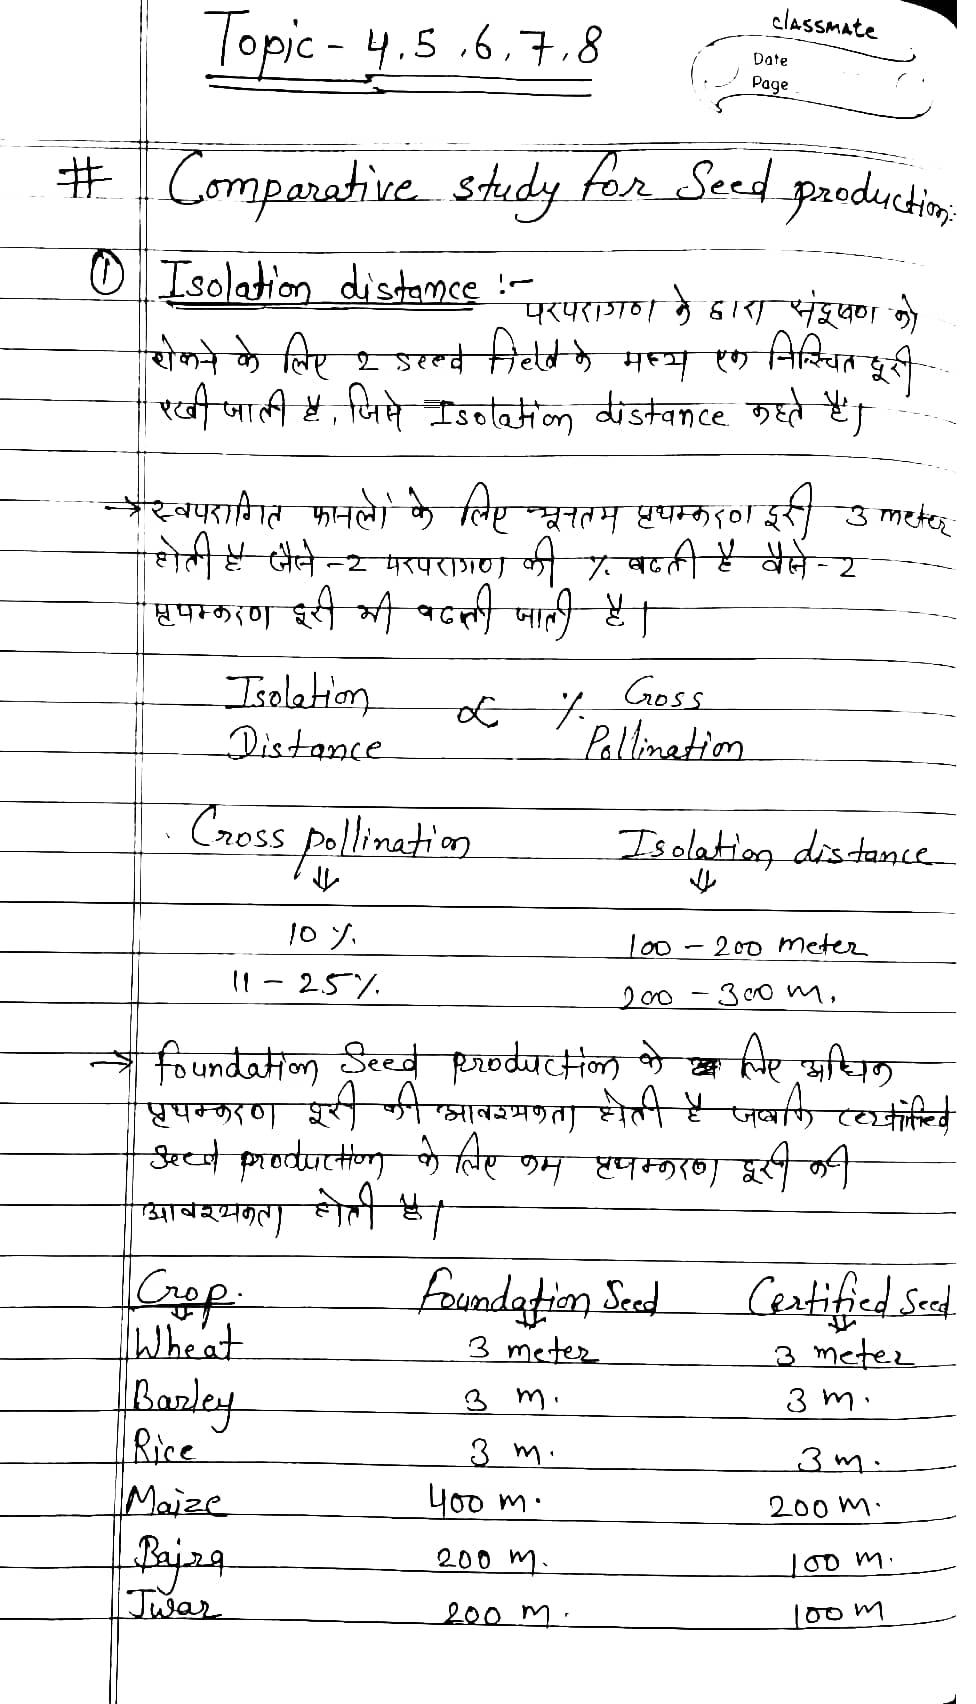 Topic - 4,5,6,7,8
classmate
Date
Page
# Comparative study for Seed production:-
① Isolation distance :-
परपरागण के द्वारा संदूषण को
रोकने के लिए 2 seed field के मध्य एक निश्चित दूरी
रखी जाती है, जिसे Isolation distance कहते हैं।
→ स्वपरागित फसलों के लिए न्यूनतम पृथक्करण दूरी 3 meter
होती है जैसे-2 परपरागण की % बढती है वैसे-2
पृथक्करण दूरी भी बढती जाती है।
Isolation Distance ∝ % Cross Pollination
Cross pollination Isolation distance
⇓ ⇓
10 % 100 - 200 meter
11 - 25% 200 - 300 m.
→ foundation Seed production के लिए अधिक
पृथक्करण दूरी की आवश्यकता होती है जबकि certified
Seed production के लिए कम पृथक्करण दूरी की
आवश्यकता होती है।
Crop. foundation Seed Certified Seed
Wheat 3 meter 3 meter
Barley 3 m. 3 m.
Rice 3 m. 3 m.
Maize 400 m. 200 m.
Bajra 200 m. 100 m.
Jwar 200 m. 100 m